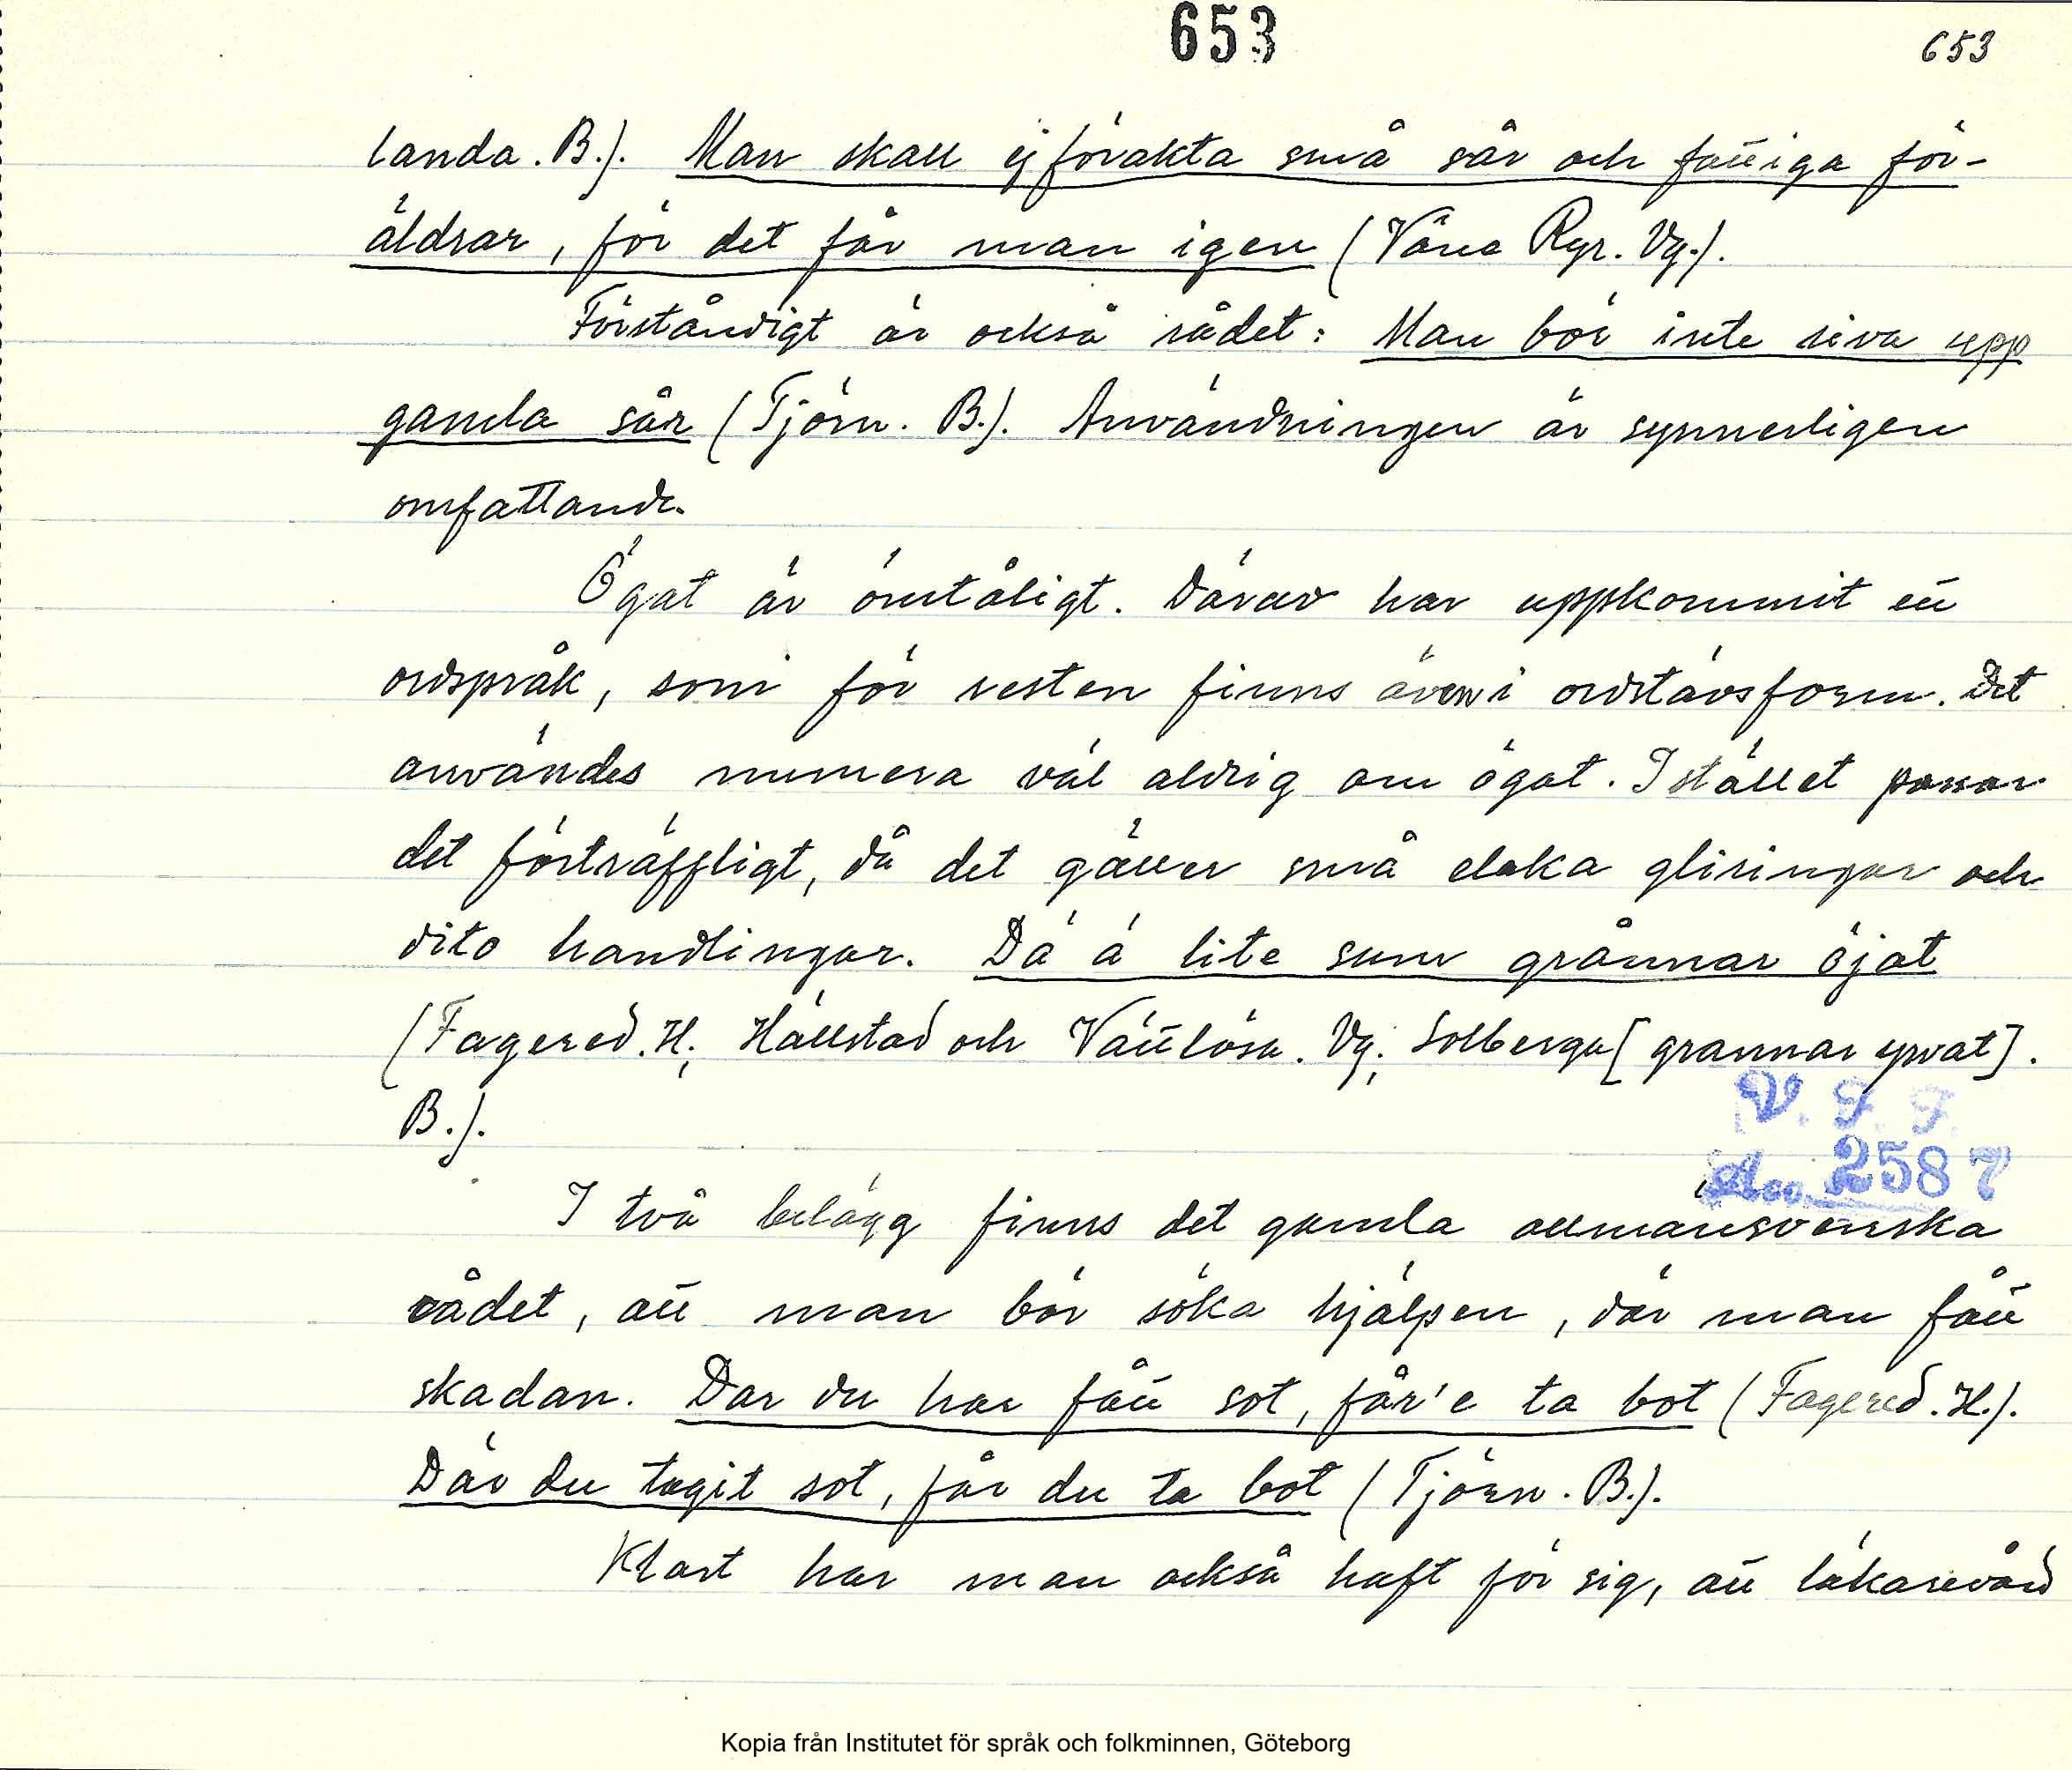 653
653
landa. B.). Man skall ej förakta små sår och fattiga för-
äldrar, för det får man igen (Våne Ryr. Vg.).
Förståndigt är också rådet: Man bör inte riva upp
gamla sår (Tjörn. B.). Användningen är synnerligen
omfattande.
Ögat är ömtåligt. Därav har uppkommit ett
ordspråk, som för resten finns även i ordstävsform. Det
användes numera väl aldrig om ögat. I stället passar
det förträffligt, då det gäller små elaka gliringar och
dito handlingar. Dä ä lite sum grånnar öjat
(Fagered. H; Hällstad och Vättlösa. Vg; Solberga [grannar yvat].
B.).
V. F. F.
Acc. 2587
I två belägg finns det gamla allmänsvenska
rådet, att man bör söka hjälpen, där man fått
skadan. Dar du har fått sot, får'e ta bot (Fagered. H.).
Där du tagit sot, får du ta bot (Tjörn. B.).
Klart har man också haft för sig, att läkarevård
Kopia från Institutet för språk och folkminnen, Göteborg